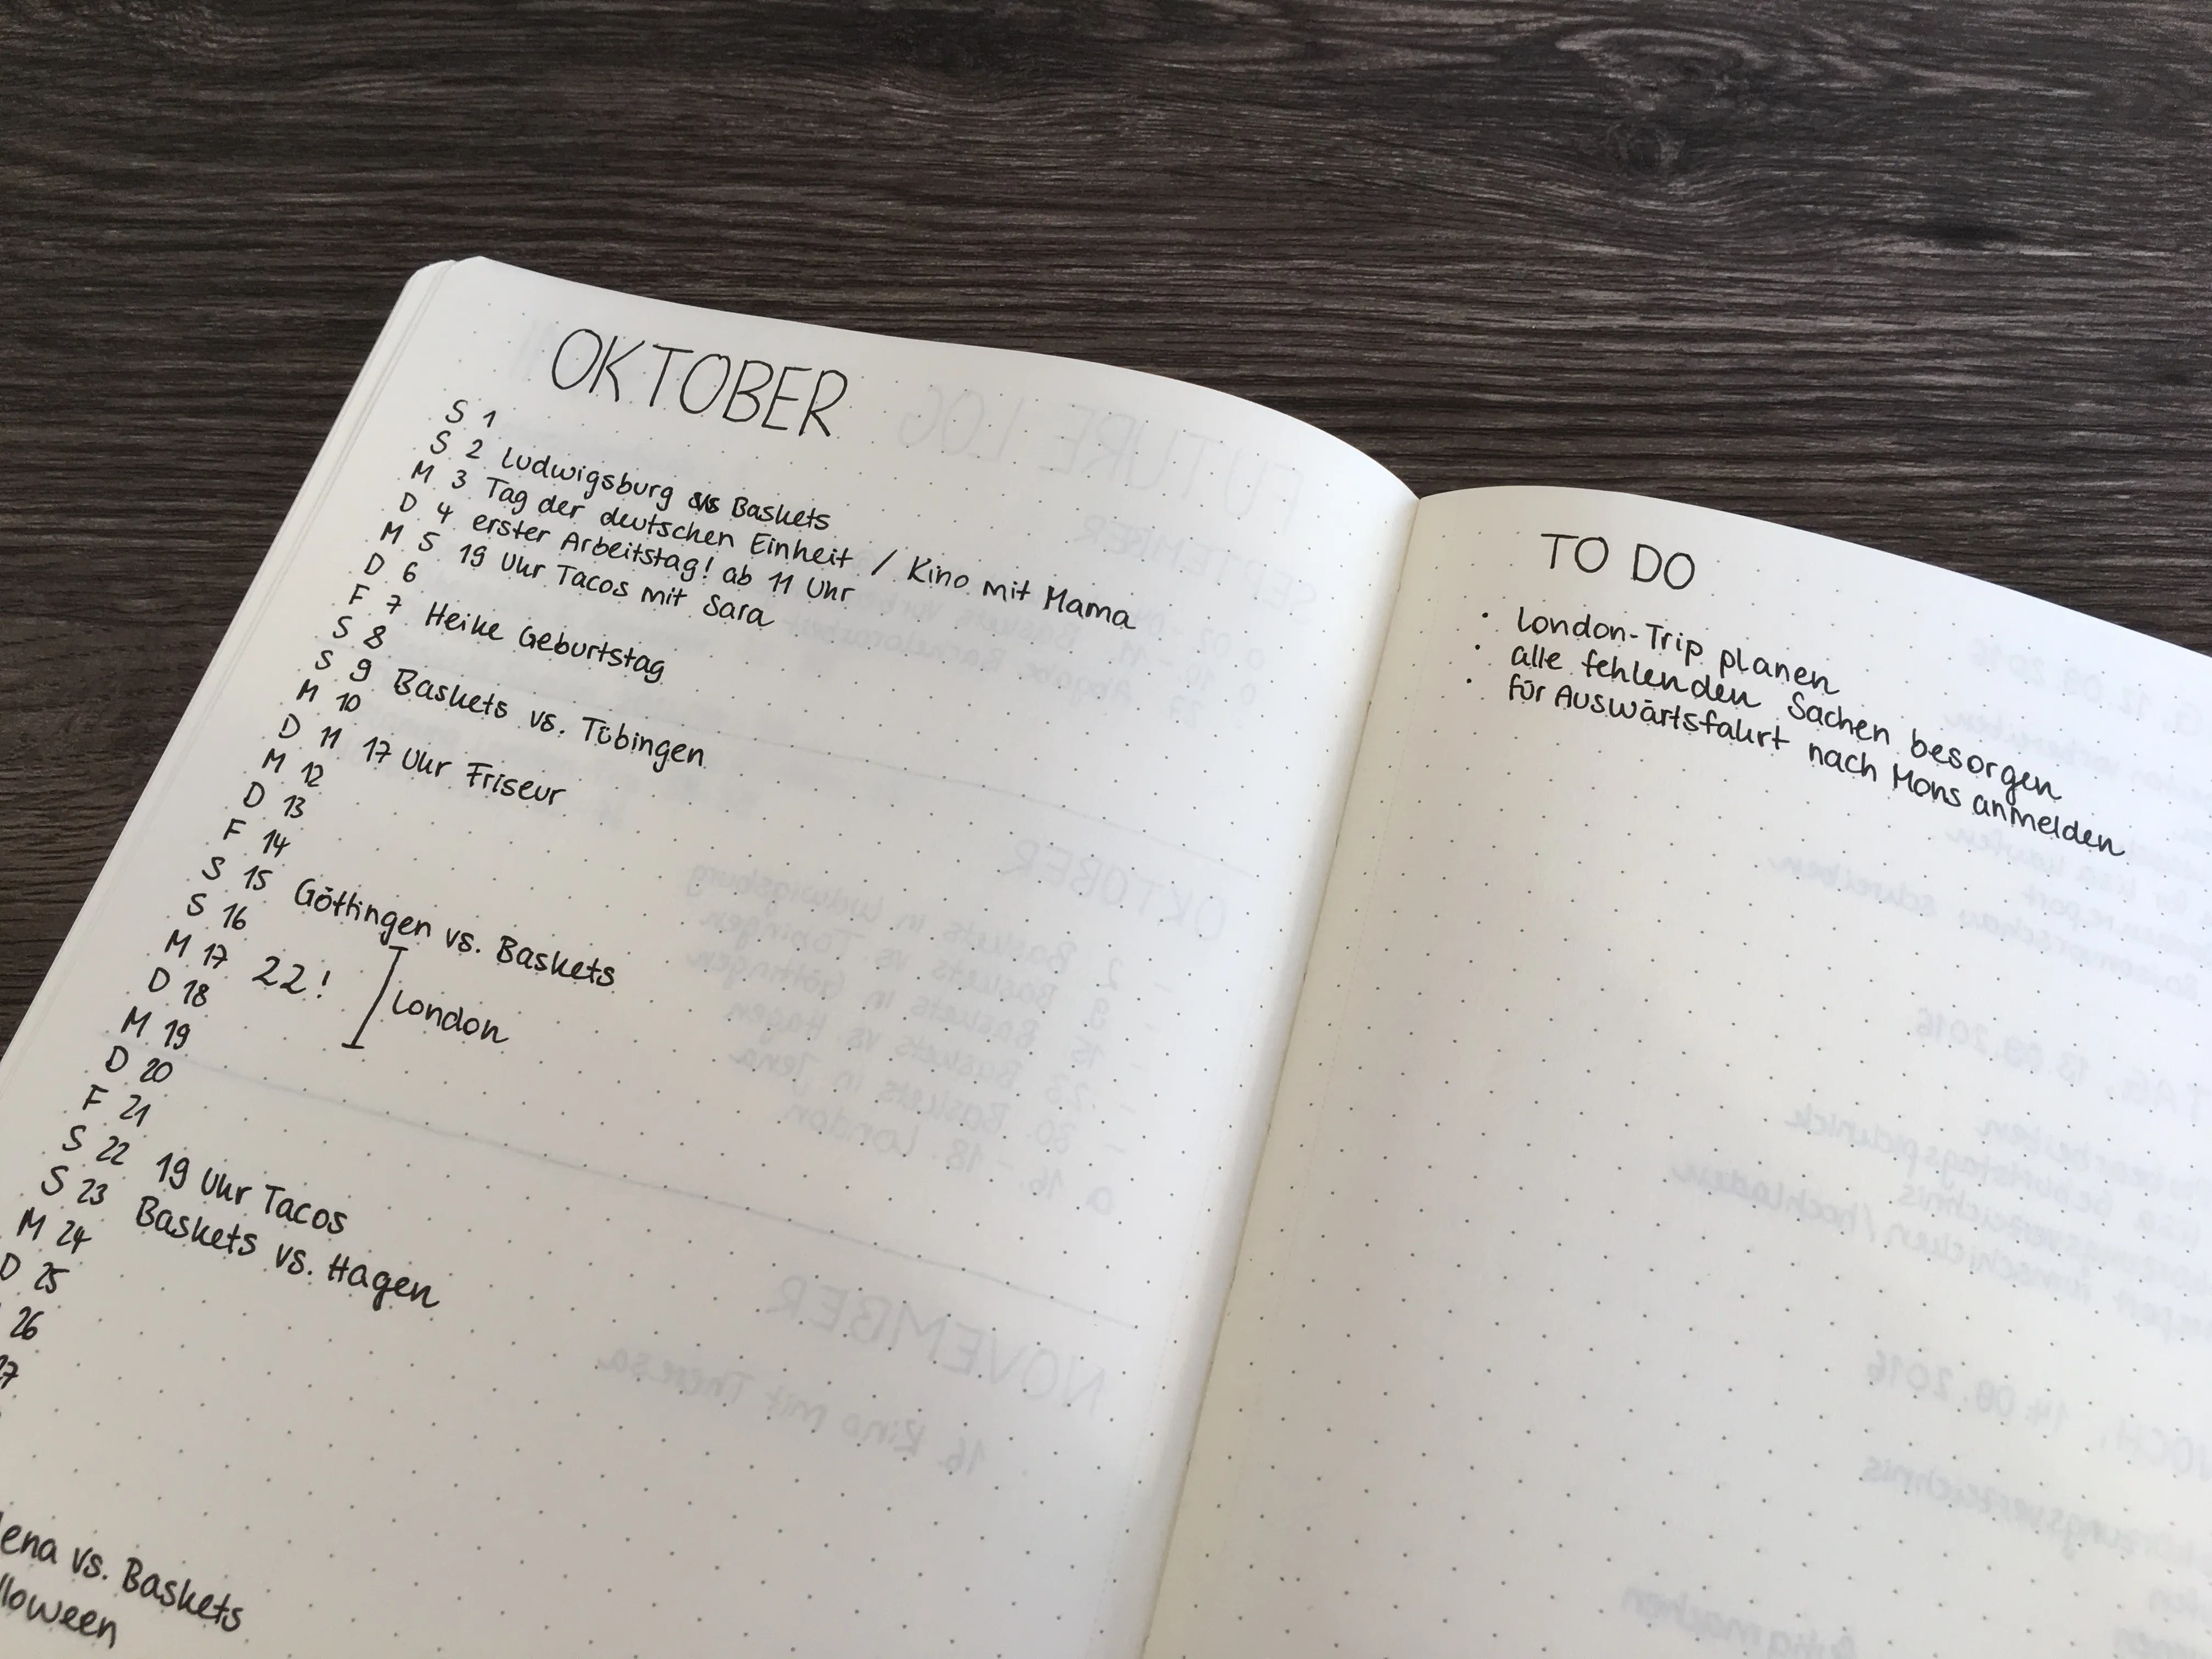 OKTOBER
S 1
S 2 Ludwigsburg vs Baskets
M 3 Tag der deutschen Einheit / Kino mit Mama
D 4 erster Arbeitstag! ab 11 Uhr
M 5 19 Uhr Tacos mit Sara
D 6
F 7 Heike Geburtstag
S 8
S 9 Baskets vs. Tübingen
M 10
D 11 17 Uhr Friseur
M 12
D 13
F 14
S 15 Göttingen vs. Baskets
S 16
M 17 22! London
D 18
M 19
D 20
F 21
S 22 19 Uhr Tacos
S 23 Baskets vs. Hagen
M 24
D 25
26
27
ena vs. Baskets
lloween
TO DO
· London-Trip planen
· alle fehlenden Sachen besorgen
· für Auswärtsfahrt nach Mons anmelden